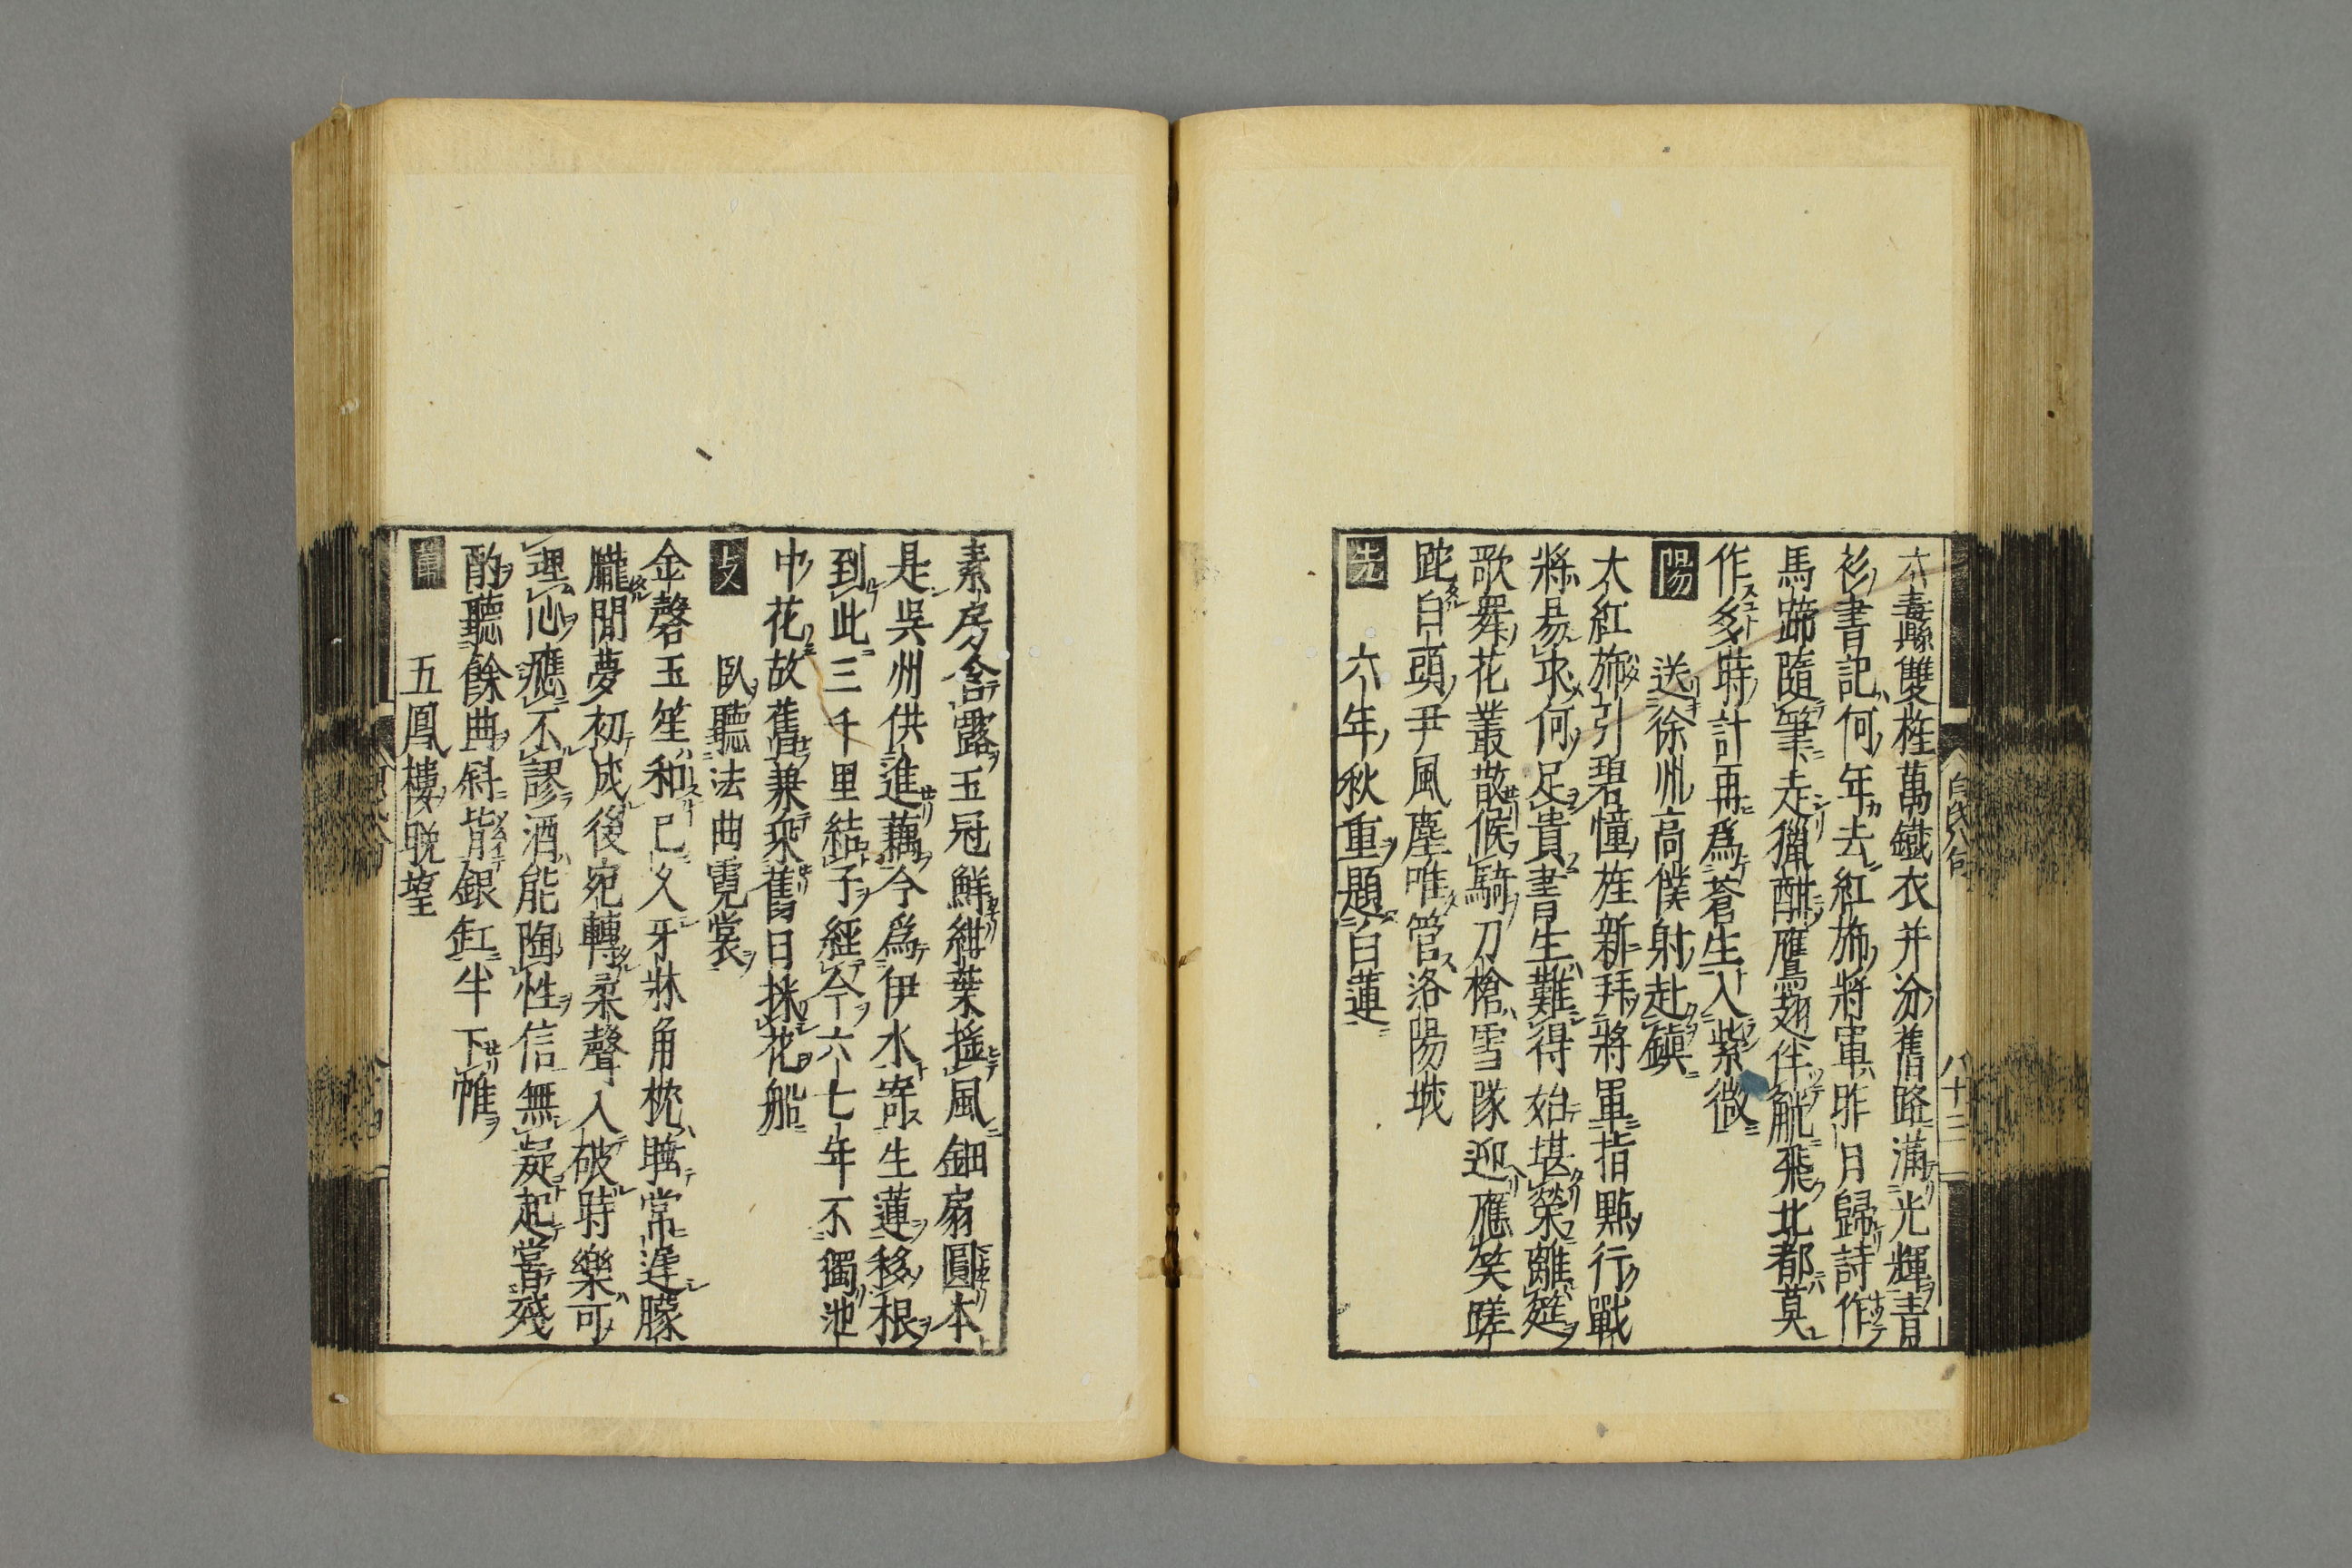 白氏八句　八十三
六纛雙旌萬鐵衣并汾舊路滿光輝青
衫書記何年去紅旆將軍昨日歸詩作
馬蹄隨筆走獵酣鷹翅伴觥飛北都莫
作多時計再爲蒼生入紫微
陽　送徐州高僕射赴鎭
大紅旆引碧幢旌新拜將軍指點行戰
將易求何足貴書生難得始堪榮離筵
歌舞花叢散候騎刀槍雪隊迎應笑蹉
跎白頭尹風塵唯管洛陽城
先　六年秋重題白蓮
素房含露玉冠鮮紺葉搖風鈿扇圓本
是吳州供進藕今爲伊水寄生蓮移根
到此三千里結子經今六七年不獨池
中花故舊兼乘舊日採花船
支　臥聽法曲霓裳
金磬玉笙和已久牙牀角枕睡常遲朦
朧閒夢初成後宛轉柔聲入破時樂可
理心應不謬酒能陶性信無疑起嘗殘
酌聽餘曲斜背銀缸半下帷
五鳳樓晚望